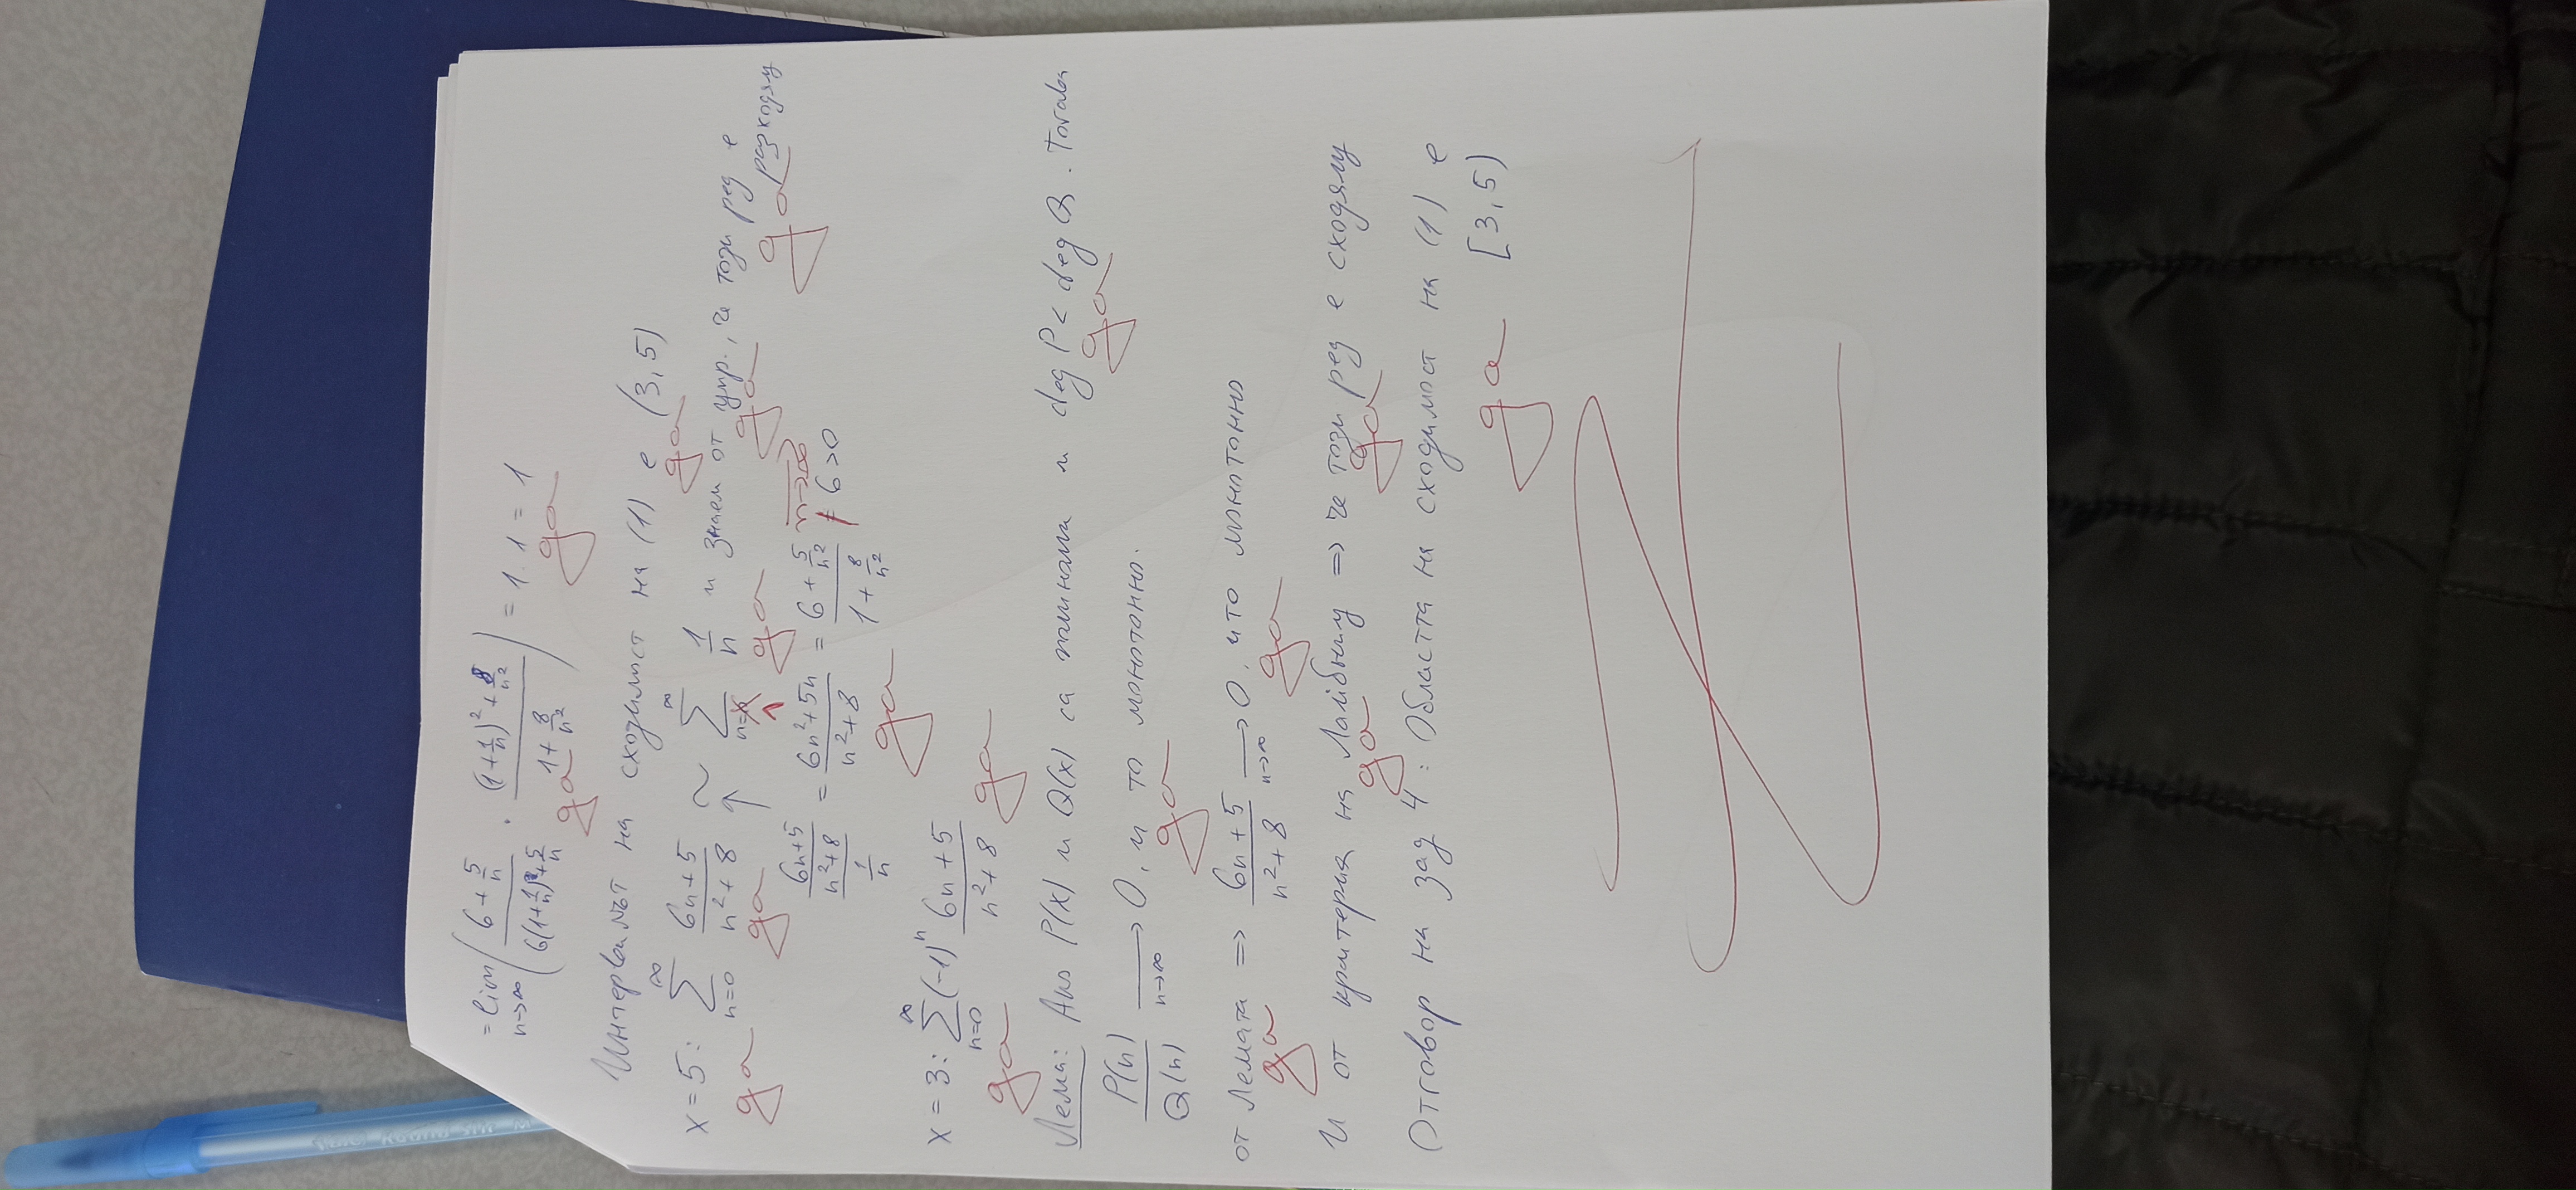 = lim n→∞ ( (6 + 5/n) / (6(1+1/n)+5/n) · ((1+1/n)² + 8/n²) / (1 + 8/n²) ) = 1.1 = 1
да да
Интервалът на сходимост на (1) е (3,5)
да
x = 5: ∞ Σ n=0 (6n+5)/(n²+8) ~ ∞ Σ n= 1 1/n и знаем от упр., че този ред е разходящ
да да да да да
((6n+5)/(n²+8))/(1/n) = (6n²+5n)/(n²+8) = (6 + 5/n²)/(1 + 8/n²) n→∞ → 6 > 0
да
x = 3: ∞ Σ n=0 (-1)ⁿ (6n+5)/(n²+8)
да да
Лема: Ако P(x) и Q(x) са полиноми и deg P < deg Q. Тогава
да
P(n)/Q(n) → n→∞ 0, и то монотонно.
да
от Лемата => (6n+5)/(n²+8) → n→∞ 0, и то монотонно
да да
И от критерия на Лайбниц => че този ред е сходящ
да да
Отговор на зад 4: Областта на сходимост на (1) е
да [3,5)